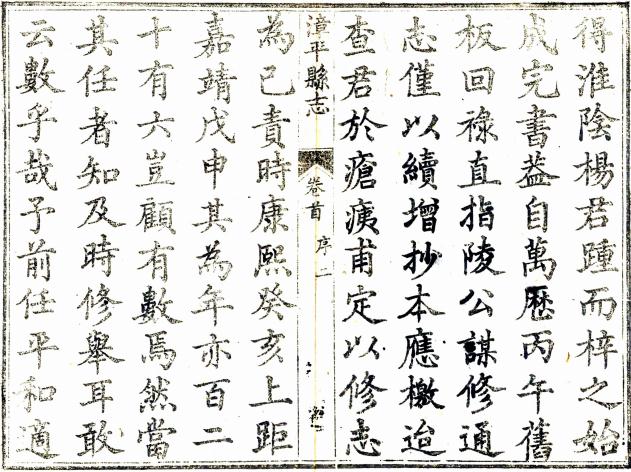 得淮陰楊君踵而梓之始
成完書蓋自萬歷丙午舊
板回祿直指陵公謀修通
志僅以續增抄本應檄迨
查君於瘡痍甫定以修志
漳平縣志
卷首 序 二
為己責時康熙癸亥上距
嘉靖戊申其為年亦百二
十有六豈顧有數焉然當
其任者知及時修舉耳敢
云數乎哉予前任平和適